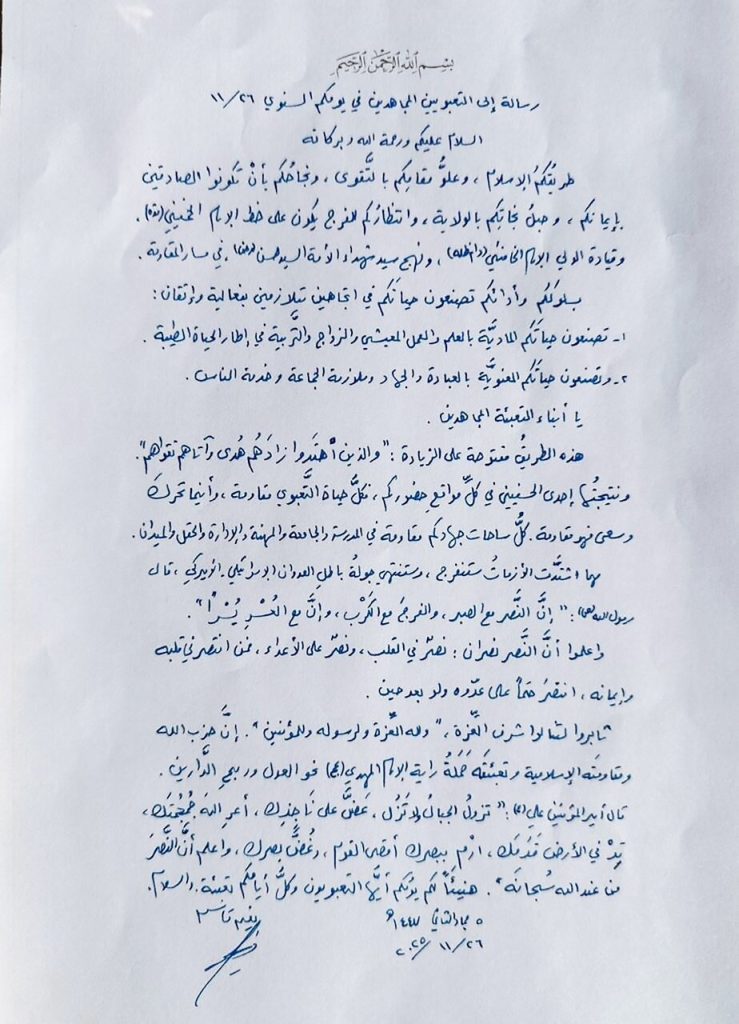 بسم الله الرحمن الرحيم
رسالة إلى التعبويين المجاهدين في يومكم السنوي ١١/٢٦
السلام عليكم ورحمة الله وبركاته
طريقُكُم الإسلام، وعلوُّ مقامِكم بالتَّقوى، ونجاحُكم بأنْ تكونوا الصادقين
بإيمانكم، وحبلُ نجاتِكم بالولاية، وانتظارُكم للفرج يكون على خط الإمام الخميني (قده).
وقيادة الولي الإمام الخامنئي (دام ظله)، ونهج سيد شهداء الأمة السيد حسن (رض)، في مسار المقاومة.
بسلوككم وأدائكم تصنعون حياتَكم في اتجاهين متلازمين بفعالية وإتقان:
١- تصنعون حياتَكم الماديَّة بالعلم والعمل المعيشي والزواج والتَّربية في إطار الحياة الطيبة.
٢- وتصنعون حياتَكم المعنويَّة بالعبادة والجهاد وملازمة الجماعة وخدمة الناس.
يا أبناء التعبئة المجاهدين.
هذه الطريقُ مفتوحة على الزيادة: "والذين اهتَدوا زادَهُم هُدى وآتاهم تقواهم".
ونتيجتُها إحدى الحسنيين في كلِّ مواقع حضوركم، فكلُّ حياة التَّعبوي مقاومة، وأينما تحرك
وسعى فهو مقاومة. كلُّ ساحات جهادكم مقاومة في المدرسة والجامعة والمهنة والإدارة والحقل والميدان.
مهما اشتدَّت الأزماتُ ستنفرج، وستنتهي جولةُ باطلِ العدوان الإسرائيلي الأميركي، قال
رسول الله (ص): "إنَّ النَّصر مع الصبر، والفرجَ مع الكَرْب، وإنَّ مع العُسْرِ يُسْراً".
واعلموا أنَّ النَّصر نصران: نصرٌ في القلب، ونصرٌ على الأعداء، فمن انتصر في قلبه
وإيمانه، انتصرَ حتماً على عدّوه ولو بعد حين.
ثابروا لتنالوا شرف العِّزة، "ولله العِّزة ولرسوله وللمؤمنين". إنَّ حزب الله
ومقاومتَه الإسلامية وتعبئتَه حَمَلَةُ راية الإمام المهدي (عج) نحو العدل وربح الدَّارين.
قال أمير المؤمنين علي (ع): "تزولُ الجبالُ ولا تَزُل، عَضَّ على نَاجذِك، أعرِ اللهَ جُمجُمَتَك،
تِدْ في الأرض قَدَمَك، ارْمِ ببصرك أقصى القوم، وغُضَّ بصرك، واعلم أنَّ النَّصرَ
من عند الله سُبحانَه". هنيئاً لكم يومُكم أيُّها التعبويون وكلُّ أيامُكم تعبئة. والسلام.
٥ جمادى الثاني ١٤٤٧ هـ
نعيم قاسم
٢٠٢٥/١١/٢٦